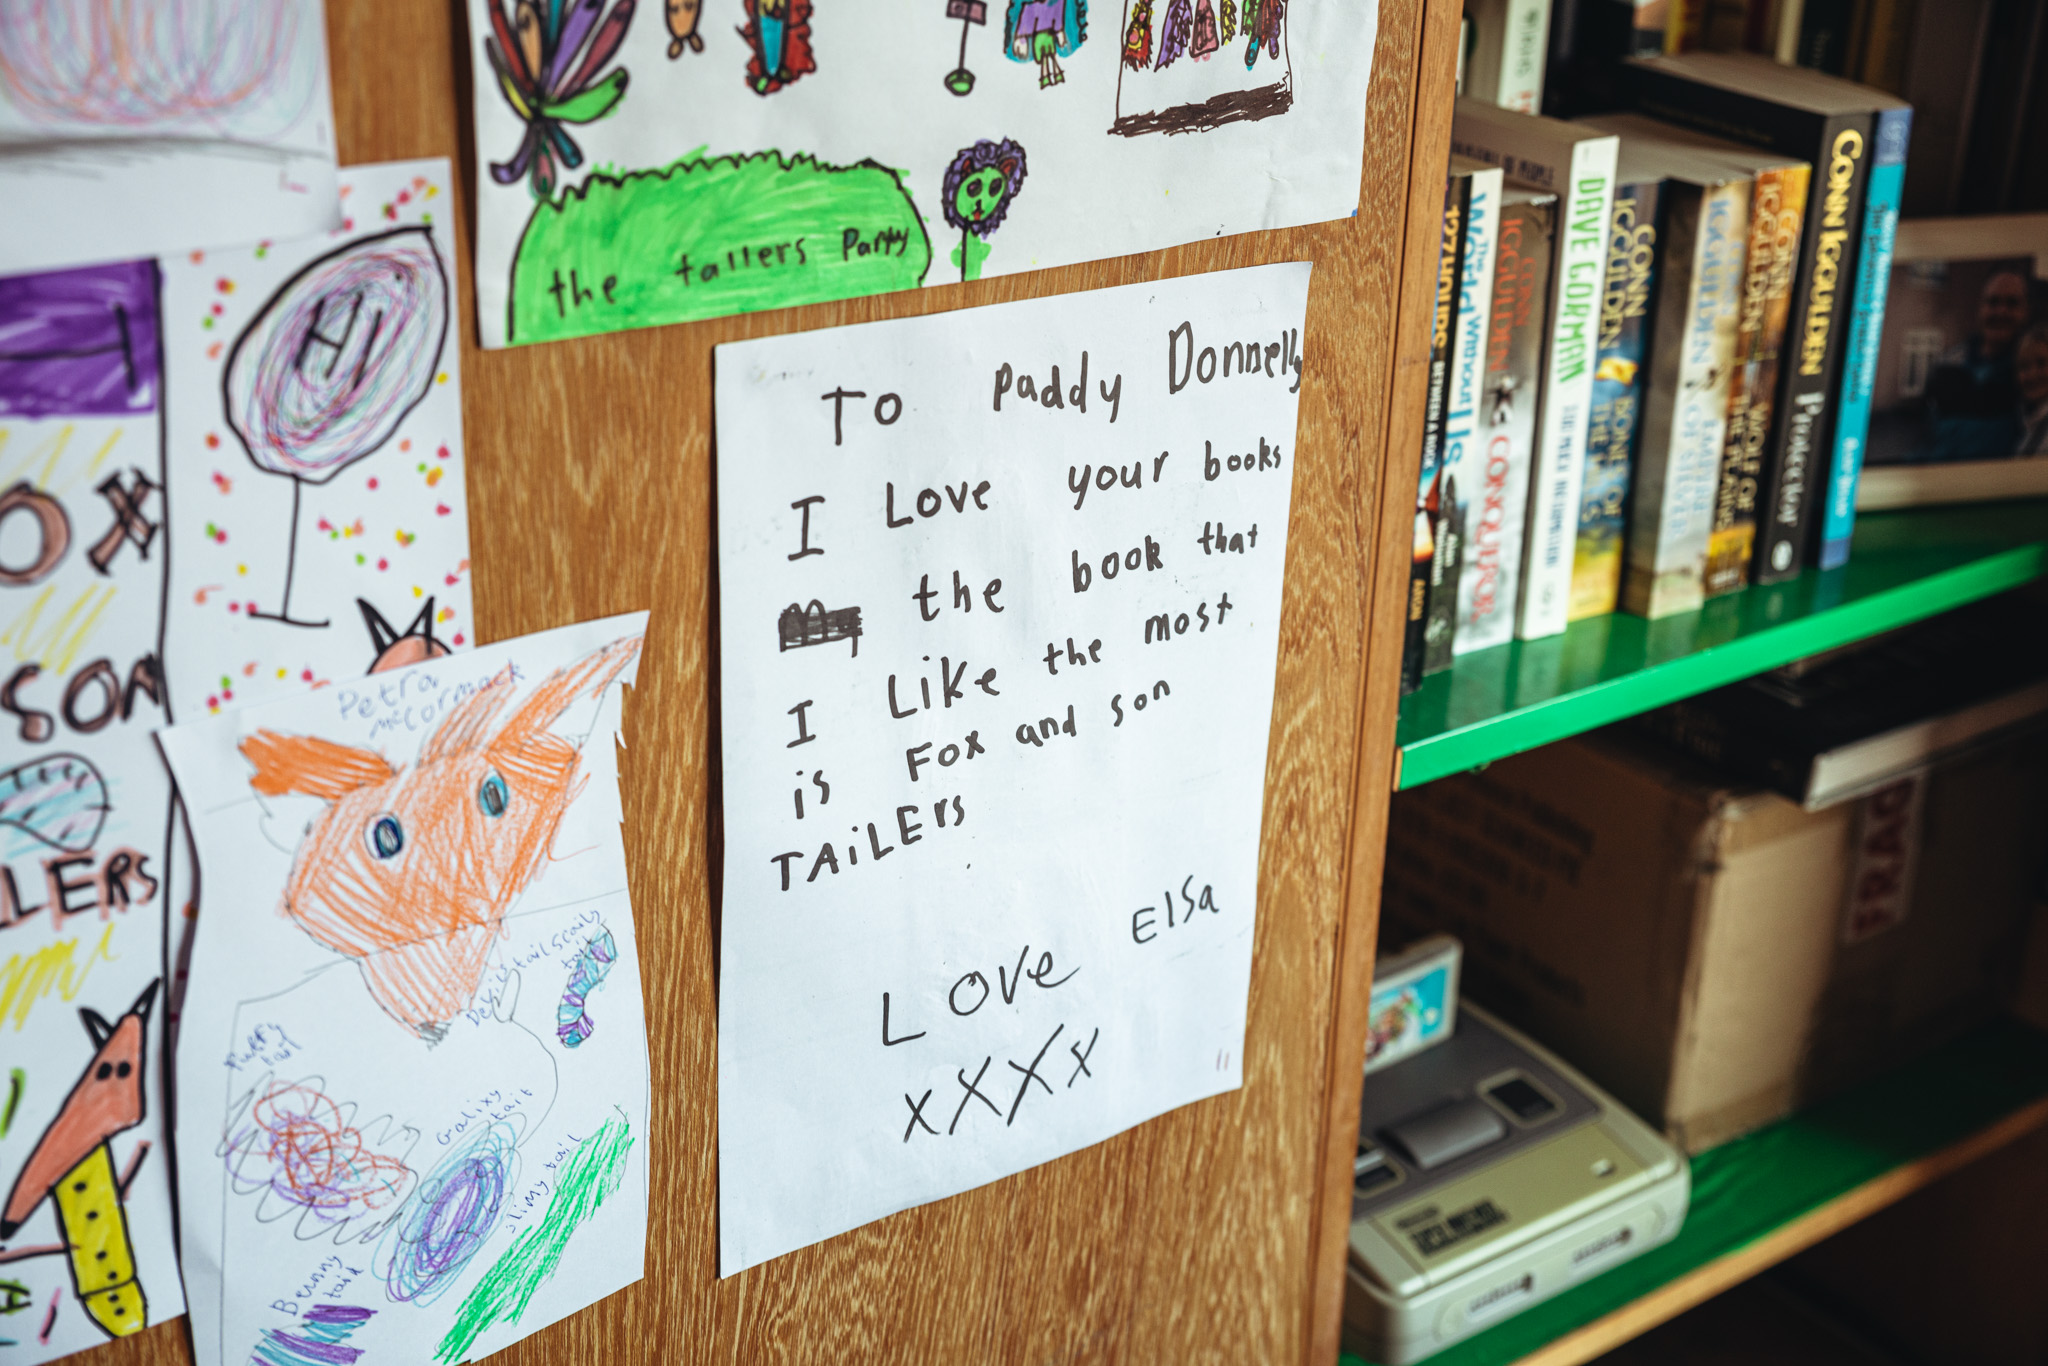 the tallers Party
HI
OX
SON
LERS
TO Paddy Donnelly
I Love your books
the book that
I Like the most
is Fox and son
TAiLERs
Love Elsa
xXXx
Petra
McCormack
Puffy
tail
Galixy
tail
Slimy tail
Bunny
tail
127 HOURS
BETWEEN A ROCK
THE World without US
CONN IGGULDEN CONQUEROR
DAVE GORMAN
CONN IGGULDEN BONES OF THE HILLS
IGGULDEN EMPIRE OF SILVER
CONN IGGULDEN WOLF OF THE PLAINS
CONN IGGULDEN Protector
FRAG